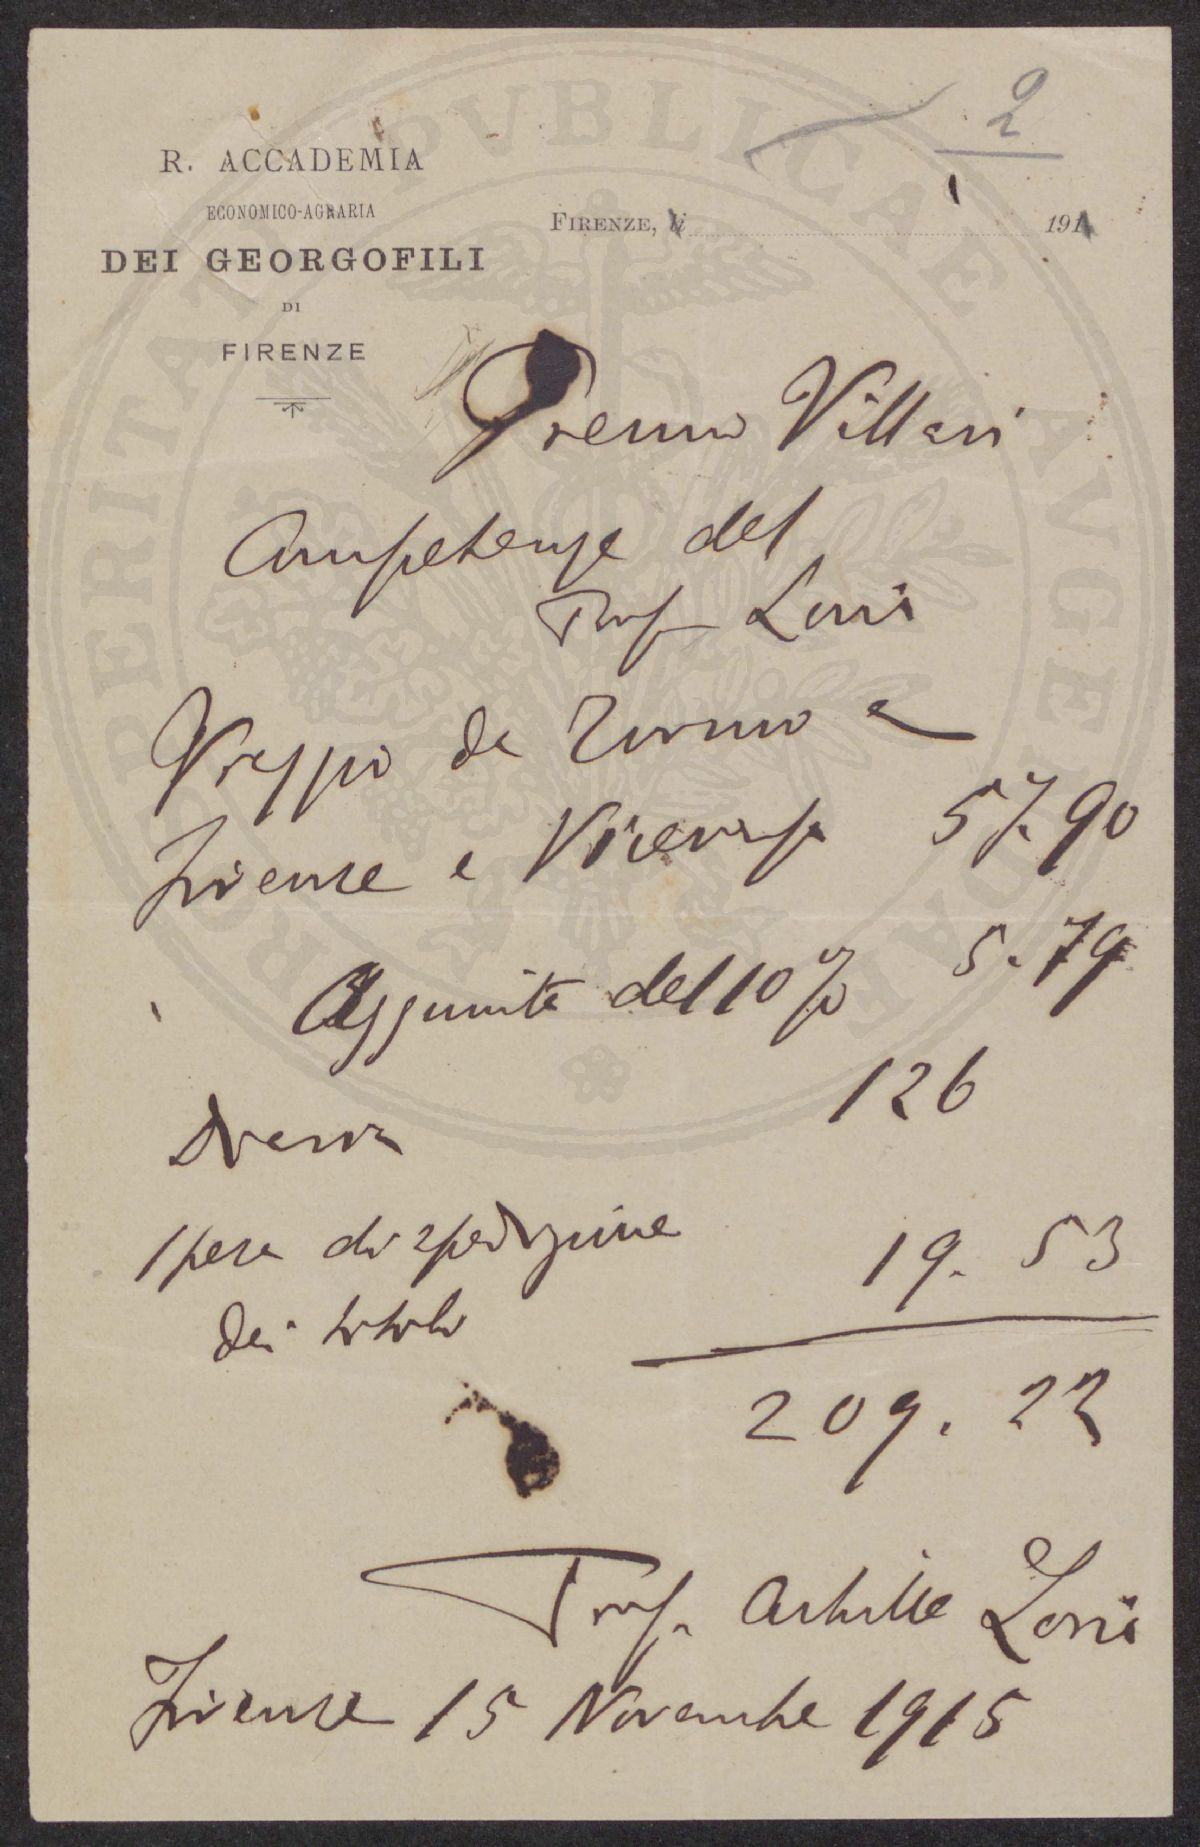 2
R. ACCADEMIA
ECONOMICO-AGRARIA
DEI GEORGOFILI
DI
FIRENZE
FIRENZE, li 191
Premio Villari
Competenze del
Prof Loria
Viaggio da Torino a
Firenze e Viceversa 57.90
Aggiunta del 10 % 5.79
Diaria 126
Spese di spedizione 19.53
dei titoli
209.22
Prof. Achille Loria
Firenze 15 Novembre 1915
PROSPERITATI PVBLICAE AVGENDAE